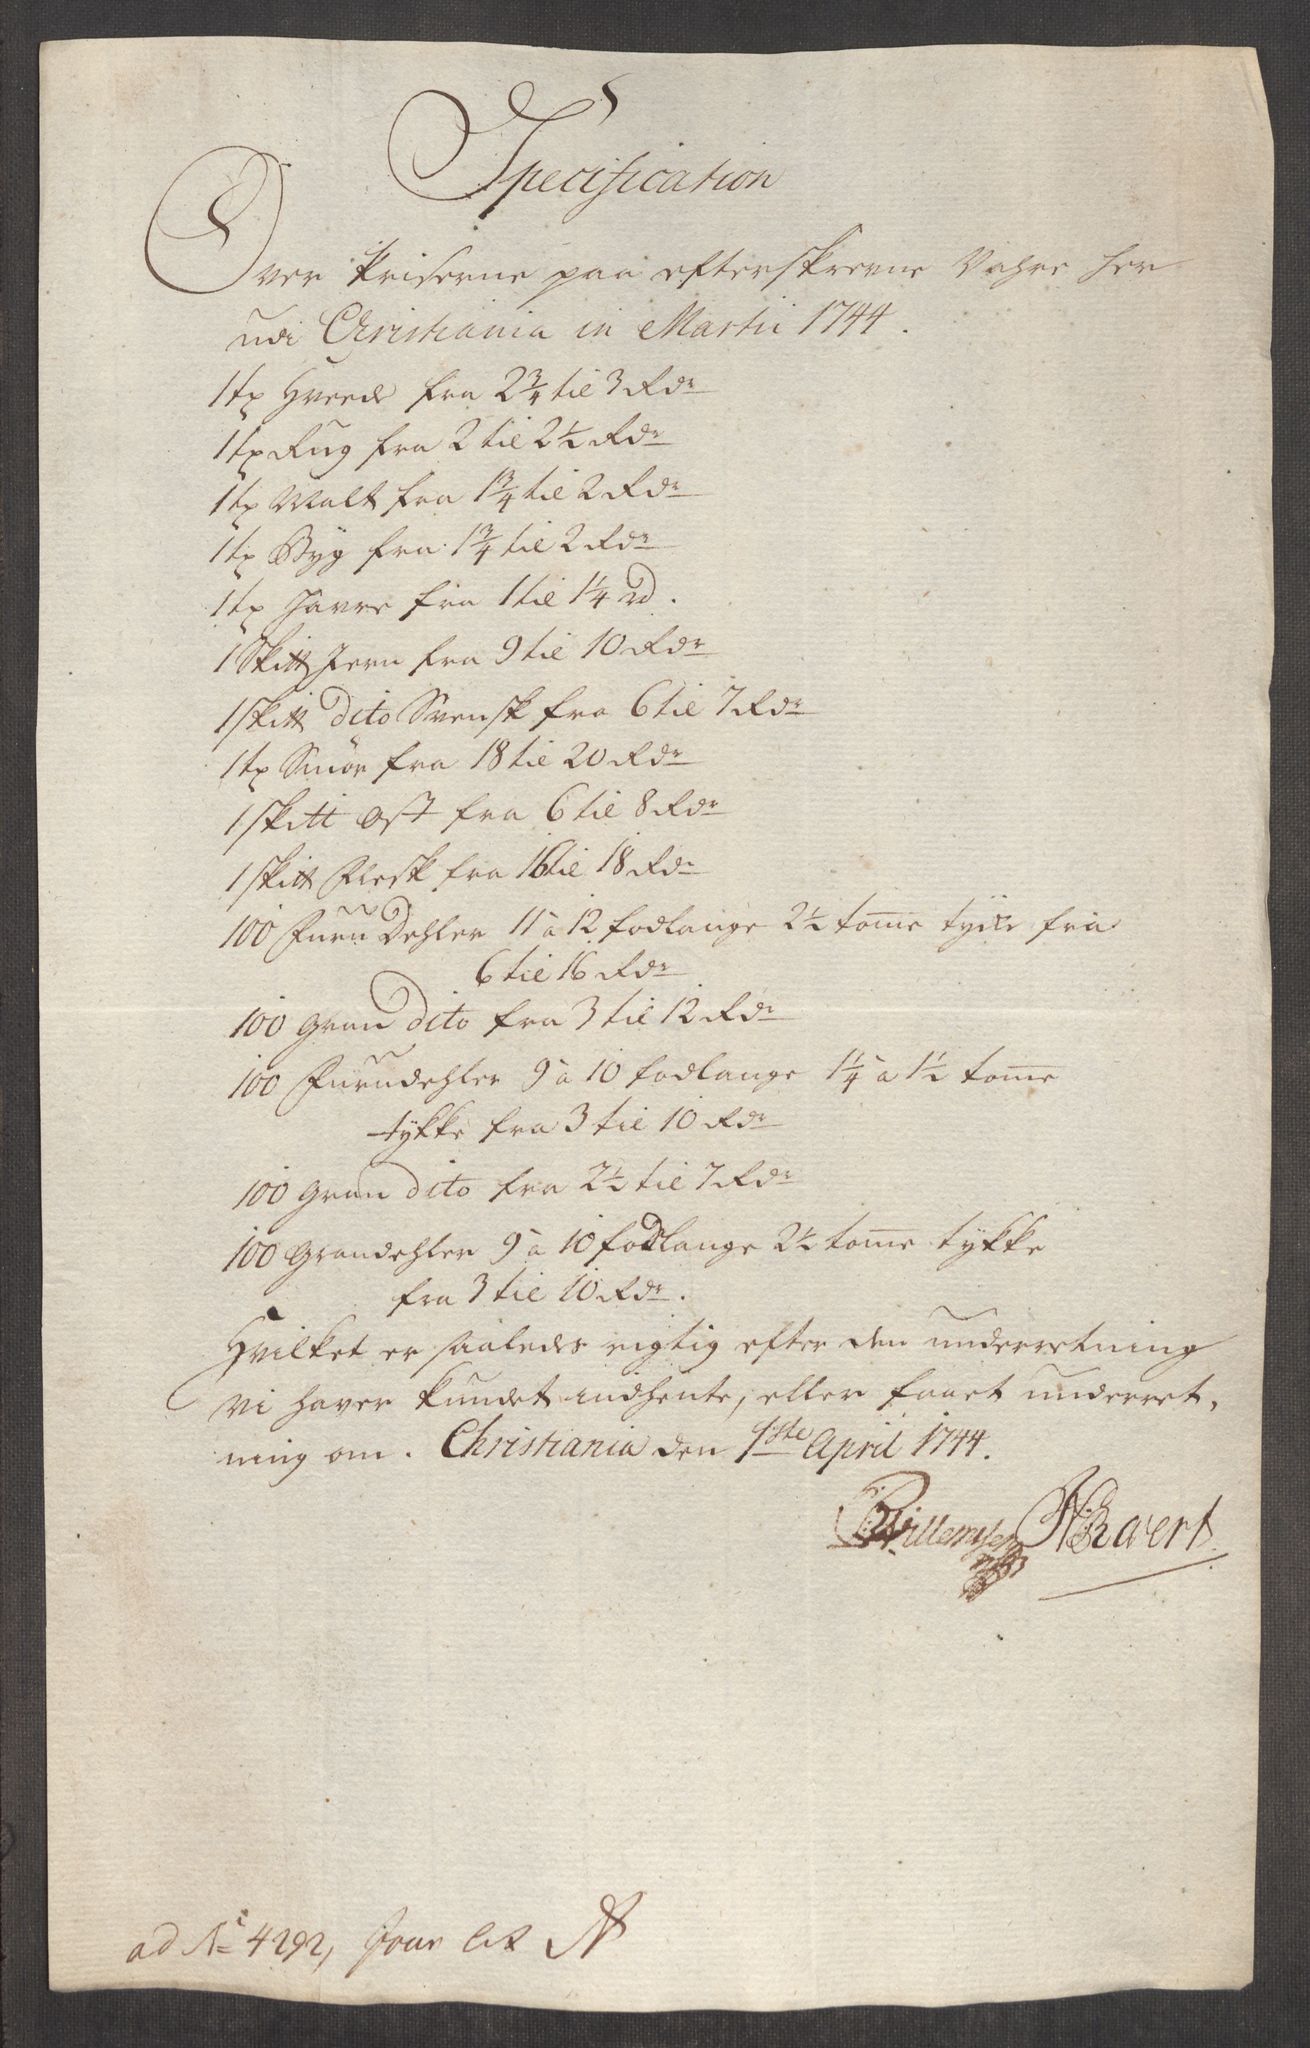 Specification
Over Priserne paa efterskrevne Vahre her
udi Christiania in Martii 1744.
1 tø Hvede fra 2¾ til 3 Rdr
1 tø Rug fra 2 til 2½ Rdr
1 tø Malt fra 1¾ til 2 Rdr
1 tø Byg fra 1¾ til 2 Rdr
1 tø Havre fra 1 til 1¼ rd.
1 Skitt Jern fra 9 til 10 Rdr
1 skitt dito Svensk fra 6 til 7 Rdr
1 tø Smör fra 18 til 20 Rdr
1 skitt Ost fra 6 til 8 Rdr
1 skitt Flesk fra 16 til 18 Rdr
100 Furu Dehler 11 a 12 fodlange 2½ tome tycke fra
6 til 16 Rdr
100 Gran dito fra 3 til 12 Rdr
100 Furudehler 9 a 10 fodlange 1¼ a 1½ tome
tykke fra 3 til 10 Rdr
100 Gran dito fra 2½ til 7 Rdr
100 Grandehler 9 a 10 fodlange 2½ tome tykke
fra 3 til 10 Rdr.
Hvilket er saaledes rigtig efter den underretning
vi haver kundet indhente, eller faaet underret-
ning om. Christiania den 1ste April 1744.
Willemsen
ad No 4292, Jour Lit N